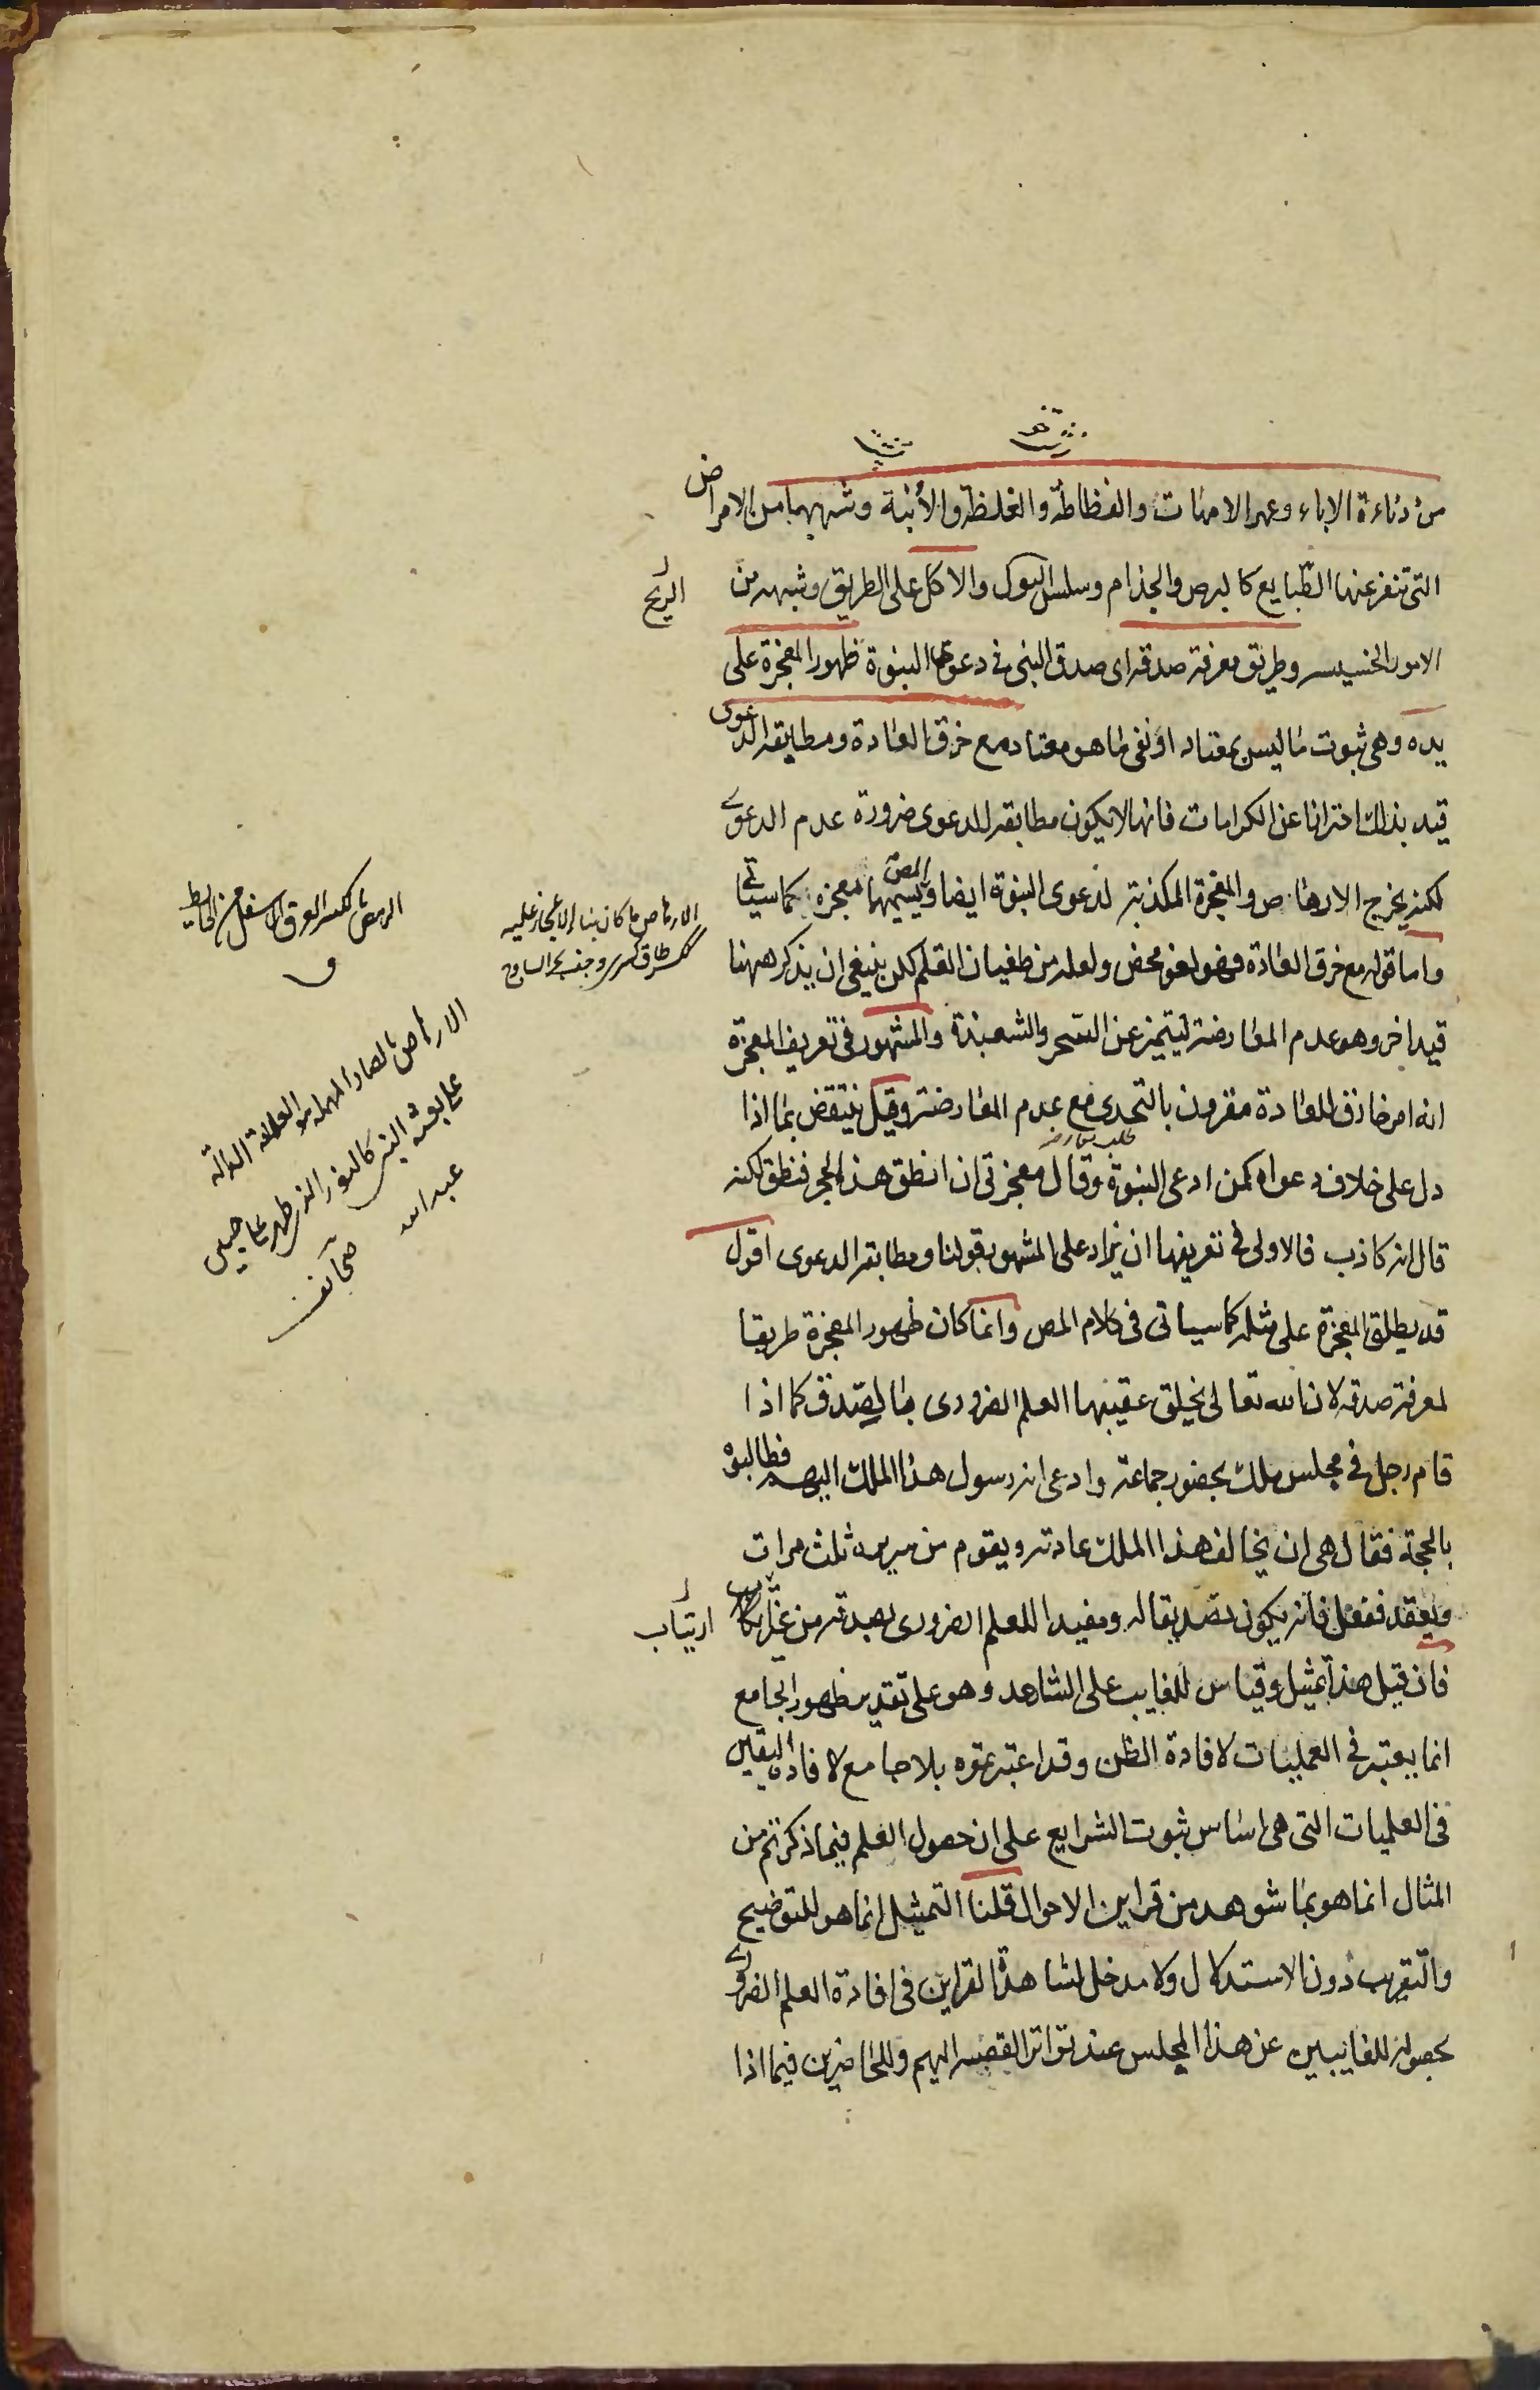 من دناءة الاباء وعهر الامهات والفظاظة والغلظة والأبنة وشبهها من الامراض
التي تنفر عنها الطبايع كالبرص والجذام وسلس البول والاكل على الطريق وشبهه من
الريح
الامور الخسيسه وطريق معرفة صدقه اى صدق النبى في دعوى النبوة ظهور المعجزة على
يده وهى ثبوت ما ليس بمعتاد او نفى ما هو معتاد مع خرق العادة ومطابقه الدعوى
قيد بذلك احترازا عن الكرامات فانها لا يكون مطابقه للدعوى ضرورة عدم الدعوى
لكنه يخرج الارهاص والمعجزة المكذبة لدعوى النبوة ايضا ويسميهما المص معجزه كما سيأتي
واما قوله مع خرق العادة فهو لغو محض ولعله من طغيان القلم لكن ينبغى ان يذكر ههنا
قيد اخر وهو عدم المعارضه ليتميز عن السحر والشعبذة والمشهور فى تعريف المعجزة
انه امر خارق للعادة مقرون بالتحدى مع عدم المعارضة وقيل ينتقض بما اذا
دل على خلاف دعواه كمن ادعى النبوة وقال معجزتى ان انطق هذا الحجر فنطق لكنه
قال انه كاذب فالاولى فى تعريفها ان يزاد على المشهور قولنا ومطابقه الدعوى اقول
قد يطلق المعجزة على مثله كما سياتى فى كلام المص وانما كان ظهور المعجزة طريقا
لمعرفة صدقه لان الله تعالى يخلق عقيبها العلم الضرورى بالصدق كما اذا
قام رجل فى مجلس ملك بحضور جماعة وادعى انه رسول هذا الملك اليهم فطالبوه
بالحجة فقال هى ان يخالف هذا الملك عادته ويقوم من سريره ثلث مرات
ويقعد ففعل فانه يكون تصديقا له ومفيدا للعلم الضرورى بصدقه من غير
ارتياب
فان قيل هذا تمثيل وقياس للغايب على الشاهد وهو على تقدير ظهور الجامع
انما يعتبر فى العمليات لافادة الظن وقد اعتبرتموه بلا جامع لافادة اليقين
فى العلميات التى هى اساس ثبوت الشرايع على ان حصول العلم فيما ذكرتم من
المثال انما هو بما شوهد من قراين الاحوال قلنا التمثيل انما هو للتوضيح
والتقريب دون الاستدلال ولا مدخل لمشاهدة القراين فى افادة العلم الضرورى
بحصوله للغايبين عن هذا المجلس عند تواتر القضيه اليهم وللحاضرين فيما اذا
الارهاص ما كان بناء
الرهص بالكسر العرق الاسفل من الحايط
ق
الارهاص بالصاد المهمله هو العلامة الدالة
على بعثة النبي كالنور الذي ظهر على جبين
عبد الله